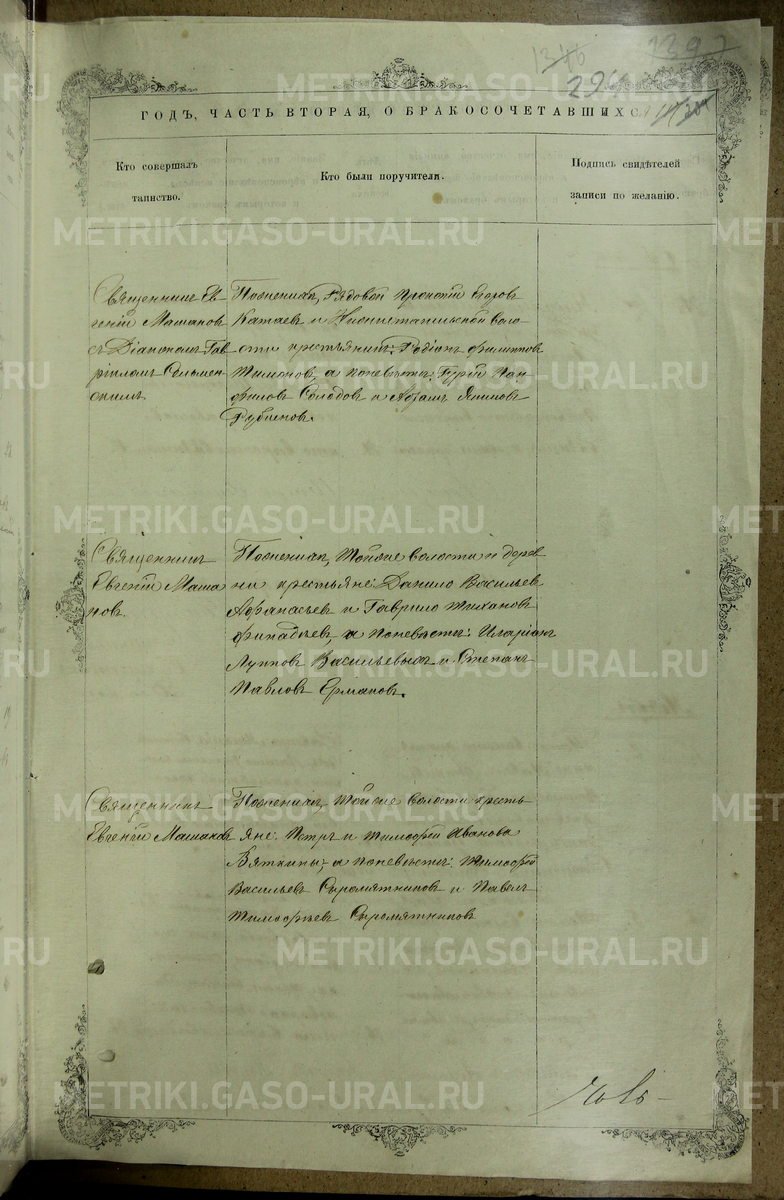 1346 1397
294
ГОДЪ, ЧАСТЬ ВТОРАЯ, О БРАКОСОЧЕТАВШИХСЯ
Кто совершалъ
таинство.
Кто были поручители.
Подпись свидѣтелей
записи по желанію.
Священникъ Ев-
геній Машанов
съ Діакономъ Гав
ріиломъ Сельмен
скимъ.
По женихѣ, Рядовой Прокопій Егоровъ
Катаевъ и Нижнетагильской воло
сти крестьянинъ: Родіонъ Филиппов
а по невѣстѣ: Гурій Пан
филовъ Солодовъ и Адамъ Якимовъ
Рубцовъ.
Священникъ
Евгеній Маша
новъ.
По женихѣ, той же волости и дерев
ни крестьяне: Данило Васильевъ
Афанасьевъ и Гаврило Тихановъ
а по невѣстѣ: Иларіонъ
Лупповъ Васильевыхъ и Степанъ
Павловъ Ермаковъ.
Священникъ
Евгеній Машановъ
По женихѣ, той же волости кресть
яне: Петръ и Тимофей Ивановы
Вяткины, а по невѣстѣ: Тимофей
Васильевъ Сыромятниковъ и Павелъ
Тимофѣевъ Сыромятниковъ
METRIKI.GASO-URAL.RU